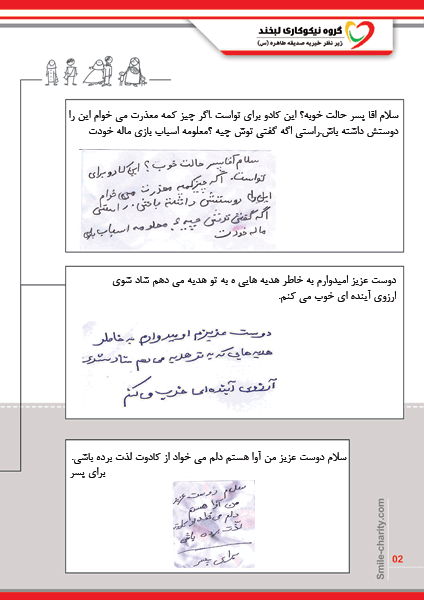 گروه نیکوکاری لبخند
زیر نظر خیریه صدیقه طاهره (س)
سلام اقا پسر حالت خوبه؟ این کادو برای تواست .اگر چیز کمه معذرت می خوام این را
دوستش داشته باش.راستی اگه گفتی توش چیه ؟معلومه اسباب بازی ماله خودت
سلام آقا پسر حالت خوب؟ این کادو برای
تواست. اگر چیز کمه معذرت می خوام
این را دوستش داشته باش. راستی
اگه گفتی توش چیه؟ معلومه اسباب بازی
ماله خودت
دوست عزیز امیدوارم به خاطر هدیه هایی ه به تو هدیه می دهم شاد شوی
ارزوی آینده ای خوب می کنم.
دوست عزیزم امیدوارم به خاطر
هدیه هایی که به تو هدیه می دهم شاد شوی
آرزوی آینده ای خوب می کنم
سلام دوست عزیز من آوا هستم دلم می خواد از کادوت لذت برده باشی.
برای پسر
سلام دوست عزیز
من آوا هستم
دلم می خواد از کادوت
لذت برده باشی
برای پسر
Smile-charity.com
02